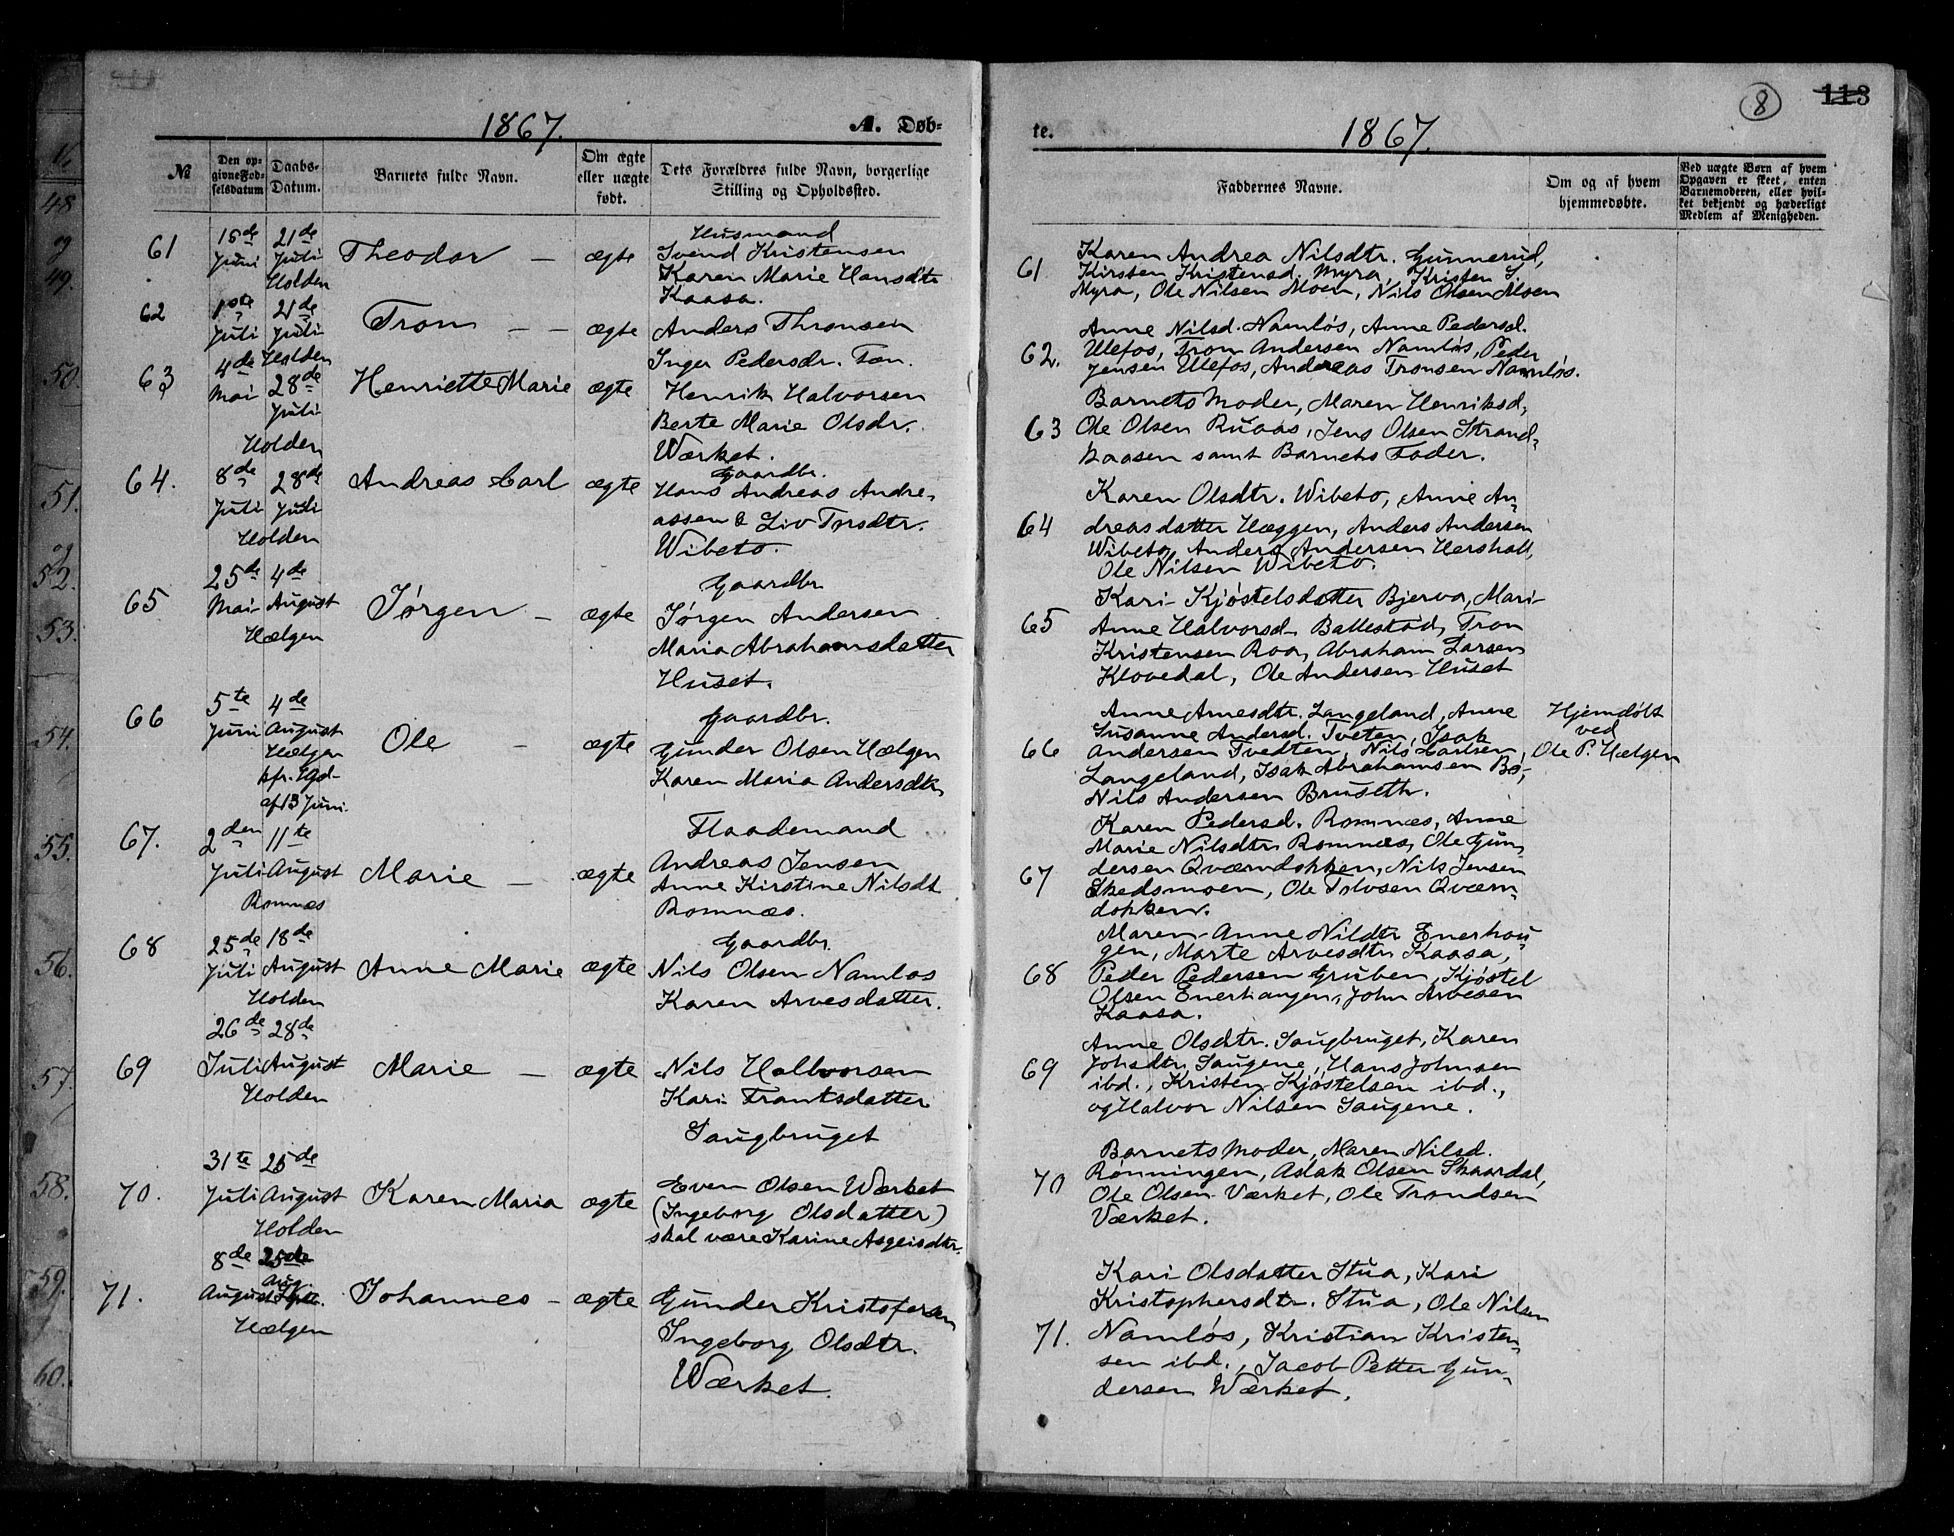 1867.
A. Døb-
№
Den op-
givne Fød-
selsdatum
Daabs-
Datum.
Barnets fulde Navn.
Om ægte
eller uægte
født.
Dets Forældres fulde Navn, borgerlige
Stilling og Opholdssted.
61
15de
Juni
21de
Juli
Holden
Theodor –
ægte
Husmand
Svend Kristensen
Karen Marie Hansdtr
Kaasa.
62
1ste
Juli
21de
Juli
Holden
Tron – –
ægte
Anders Thronsen
Inger Pedersdr. Fæn.
63
4de
Mai
28de
Juli
Holden
Henriette Marie
ægte
Henrik Halvorsen
Berte Marie Olsdr.
Værket.
64.
8de
Juli
28de
Juli
Holden
Andreas Carl
ægte
Gaardbr.
Hans Andreas Andre-
assen & Liv Torsdtr.
Wibeto.
65
25de
Mai
4de
August
Hælgen
Jørgen –
ægte
Gaardbr
Jørgen Andersen
Maria Abrahamsdatter
Huset.
66
5te
Juni
4de
August
Hælgen
af 13 Juni.
Ole –
ægte
Gaardbr.
Gunder Olsen Hælgen
Karen Maria Andersdtr.
67.
2den
Juli
11te
August
Romnæs
Marie –
ægte
Flaademand
Andreas Jensen
Anne Kirstine Nilsdt
Romnæs.
68
25de
Juli
18de
August
Holden
Anne Marie
ægte
Gaardbr.
Nils Olsen Namløs
Karen Arvesdatter.
69
26de
Juli
28de
August
Holden
Marie –
ægte
Nils Halvorsen
Kari Frantsdatter
Saugbruget
70.
31te
Juli
25de
August
Holden
Karen Maria
ægte
Even Olsen Værket
(Ingeborg Olsdatter)
skal være Karine Asgeisdtr.
71.
8de
August
25de
Aug.
Hælgen
Johannes –
ægte
Gunder Kristofersen
Ingeborg Olsdtr.
Værket.
8
113
te.
1867.
Faddernes Navne.
Om og af hvem
hjemmedøbte.
Ved uægte Børn af hvem
Opgaven er skeet, enten
Barnemoderen, eller hvil-
ket bekjendt og hæderligt
Medlem af Menigheden.
61
Karen Andrea Nilsdtr. Gunnerud,
Kirsten Kristensd. Myra, Kristen S.
Myra, Ole Nilsen Moen, Nils Olsen Moen
62.
Anne Nilsd. Namløs, Anne Pedersd.
Ulefos, Tron Andersen Namløs, Peder
Jensen Ulefos, Andreas Tronsen Namløs.
63
Barnets Moder, Maren Henriksd,
Ole Olsen Ruaas, Jens Olsen Strand-
kaasen samt Barnets Fader.
64
Karen Olsdtr. Wibeto, Anne An-
dreasdatter Hæggen, Anders Andersen
Wibeto, Anders Andersen Hershall,
Ole Nilsen Wibeto.
65
Kari Kjøstelsdatter Bjerva, Mari-
Anne Halvorsd. Ballestad, Tron
Kristensen Roa, Abraham Larsen
Klovedal, Ole Andersen Huset
66
Anne Arnesdtr. Langeland, Anne
Susanne Andersd. Tveten, Isak
Andersen Tvedten, Nils Carlsen,
Langeland, Isak Abrahamsen Bø,
Nils Andersen Bruseth.
Hjemdøbt
ved
Ole P. Hælgen
67
Karen Pedersd. Romnæs, Anne
Marie Nilsdtr Romnæs, Ole Gun-
dersen Qværndokken, Nils Jensen
Skedsmoen, Ole Tolvsen Qværn-
dokken.
68
Maren Anne Nildtr Enerhau-
gen, Marte Arvesdtr Kaasa,
Peder Pedersen Gruben, Kjøstel
Olsen Enerhaugen, John Arvesen
Kaasa.
69
Anne Olsdtr. Saugbruget, Karen
Johsdtr. Saugene, Hans Johnsen
ibd., Kristen Kjøstelsen ibd.,
og Halvor Nilsen Saugene.
70
Barnets Moder, Maren Nilsd.
Rønningen, Aslak Olsen Skaardal,
Ole Olsen Værket, Ole Trondsen
Værket.
71.
Kari Olsdatter Stua, Kari
Kristophersdtr. Stua, Ole Nilsen
Namløs, Kristian Kristen-
sen ibd., Jacob Petter Gun-
dersen Værket.